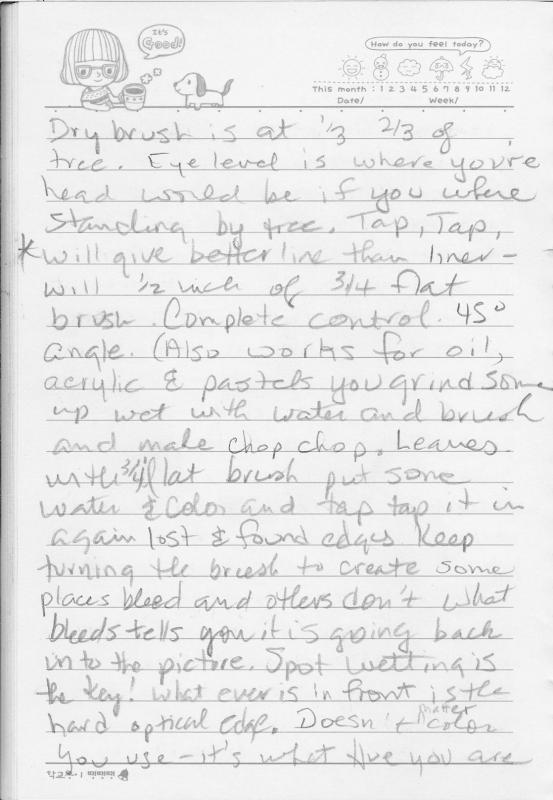 It's
Good!
How do you feel today?
This month : 1 2 3 4 5 6 7 8 9 10 11 12
Date/ Week/
Dry brush is at 1/3 2/3 of
tree. Eye level is where you're
head would be if you where
standing by tree. Tap, Tap,
* will give better line than liner -
will 1/2 inch of 3/4 flat
brush. Complete control. 45°
angle. (Also works for oil,
acrylic & pastels you grind some
up wet with water and brush
and make chop chop. Leaves
with 3/4" flat brush put some
water & color and tap tap it in
again lost & found edges Keep
turning the brush to create some
places bleed and others don't what
bleeds tells you it is going back
in to the picture. Spot wetting is
the key! What ever is in front is the
hard optical edge. Doesn't matter color
you use - it's what you are